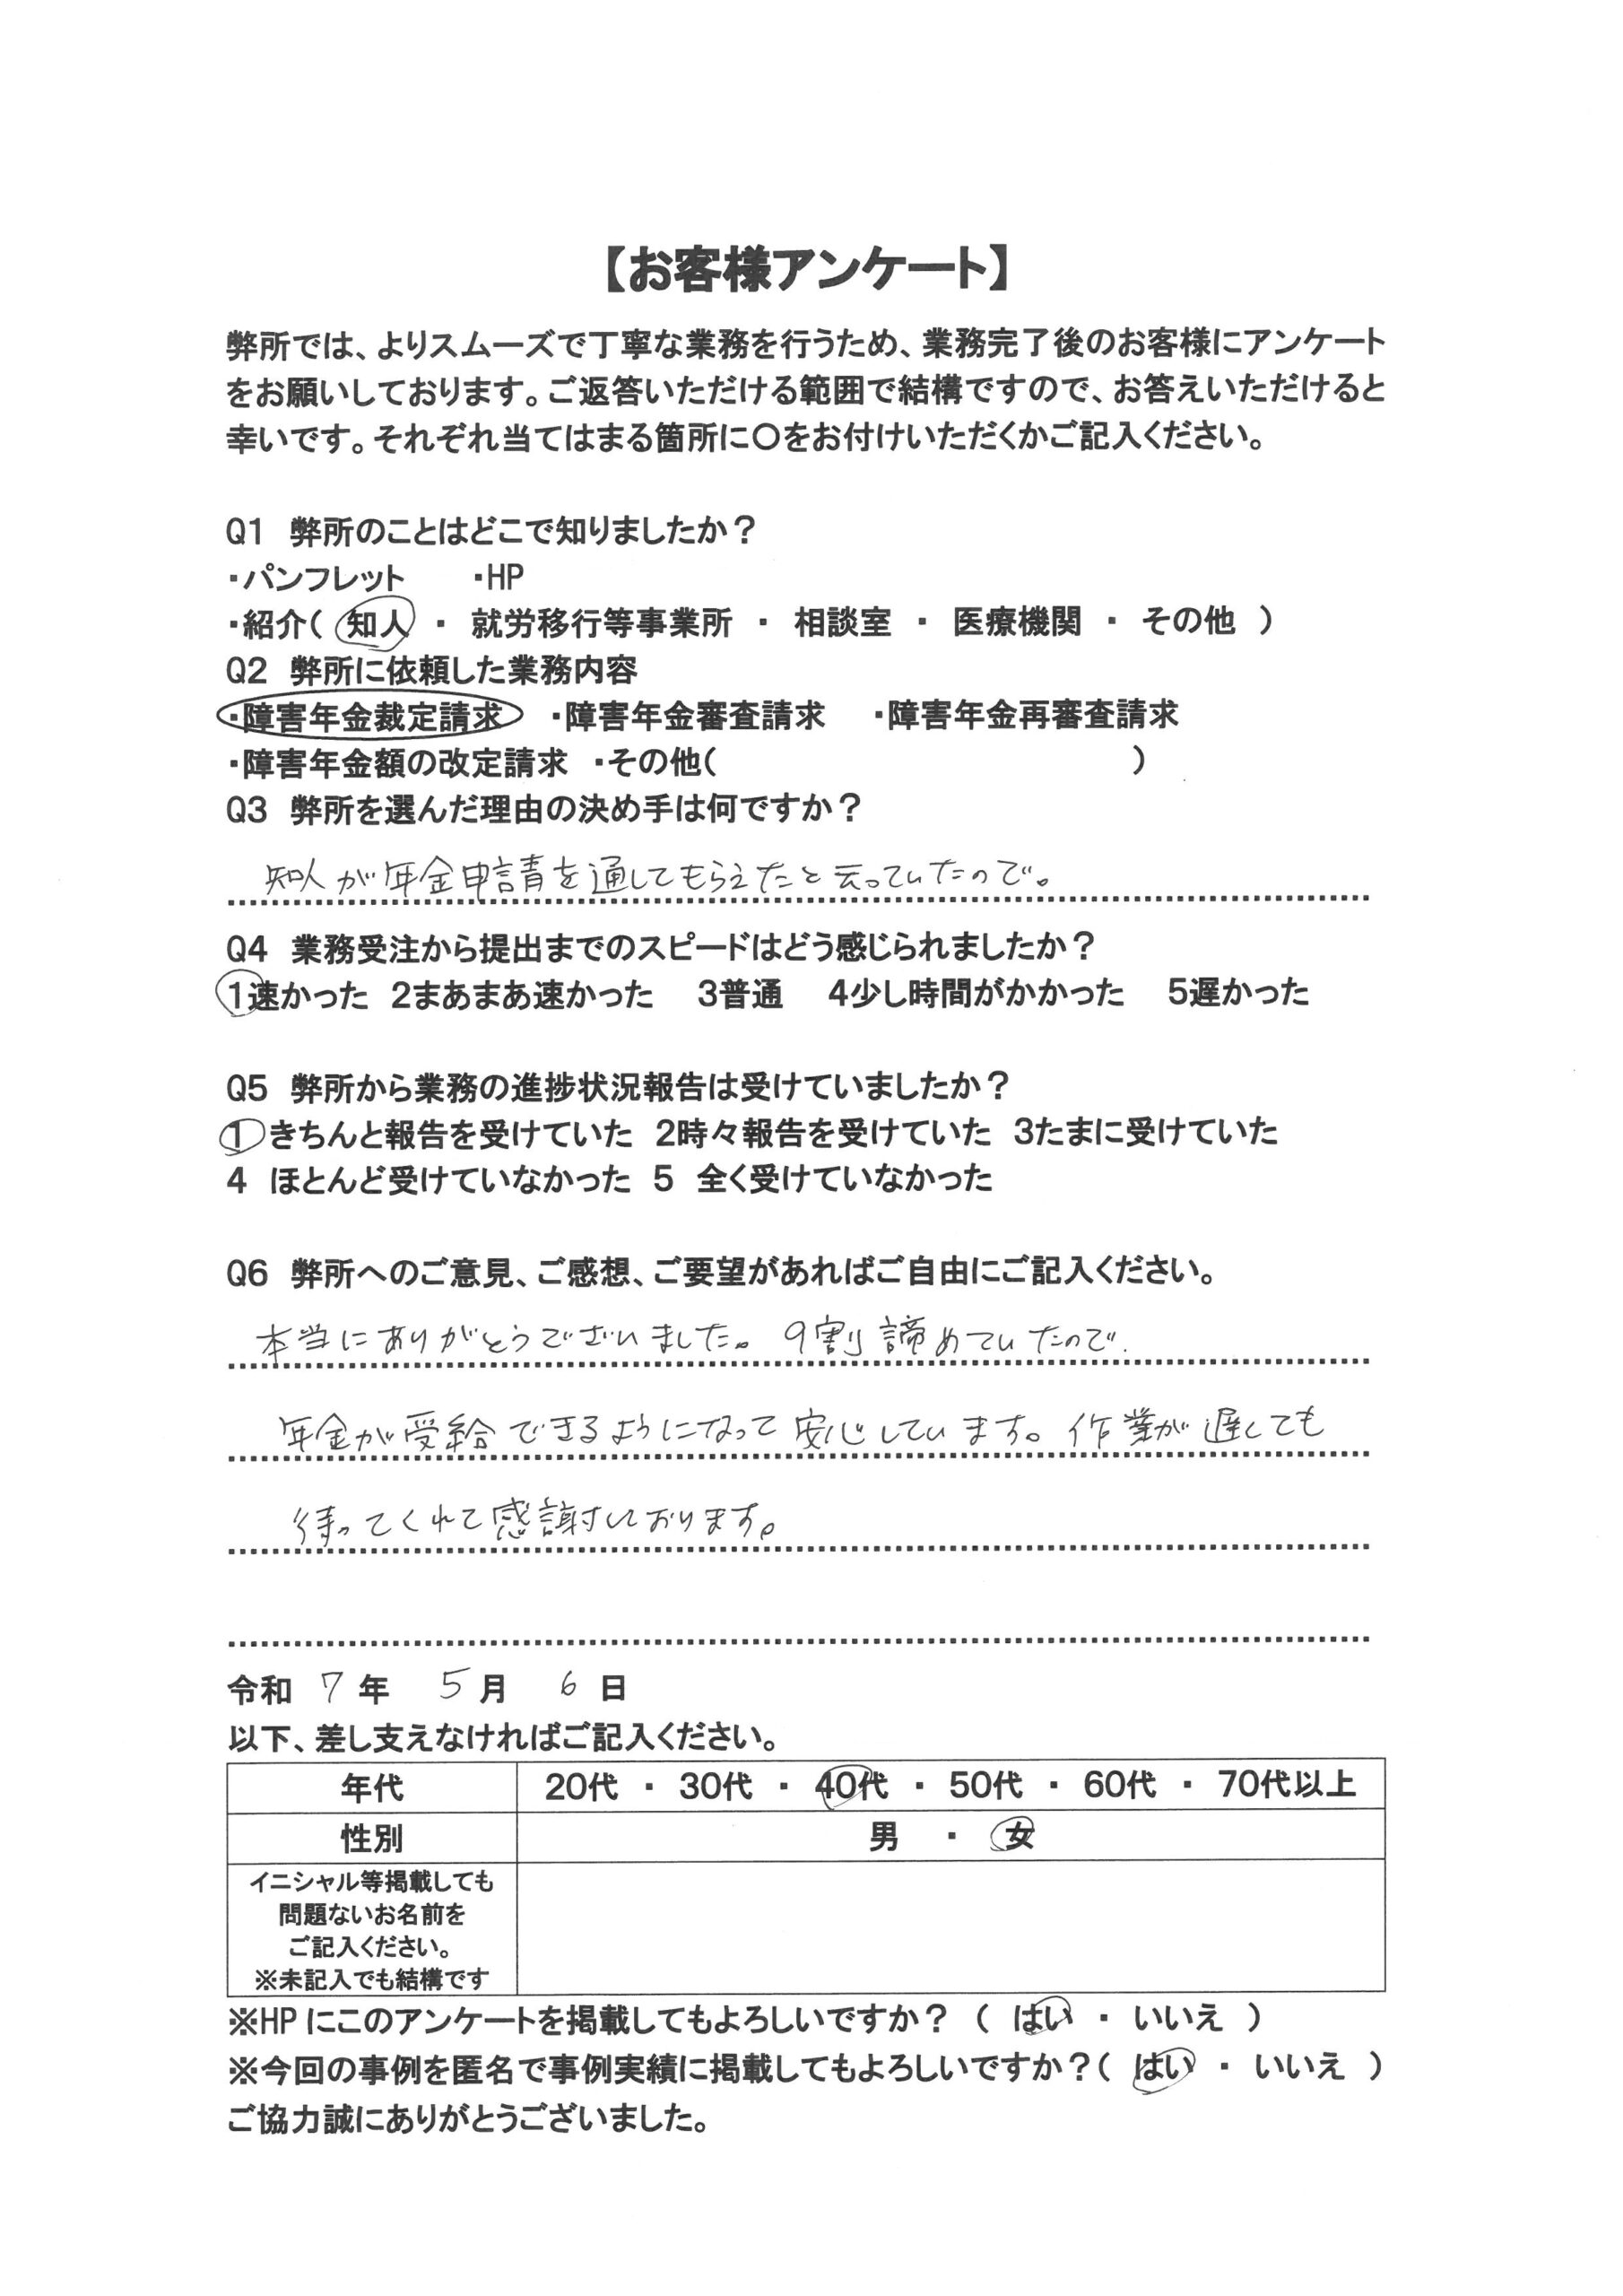 【お客様アンケート】
弊所では、よりスムーズで丁寧な業務を行うため、業務完了後のお客様にアンケート
をお願いしております。ご返答いただける範囲で結構ですので、お答えいただけると
幸いです。それぞれ当てはまる箇所に〇をお付けいただくかご記入ください。
Q1 弊所のことはどこで知りましたか？
・パンフレット ・HP
・紹介（ 知人 ・ 就労移行等事業所 ・ 相談室 ・ 医療機関 ・ その他 ）
Q2 弊所に依頼した業務内容
・障害年金裁定請求 ・障害年金審査請求 ・障害年金再審査請求
・障害年金額の改定請求 ・その他（ ）
Q3 弊所を選んだ理由の決め手は何ですか？
知人が年金申請を通してもらえたと云っていたので。
Q4 業務受注から提出までのスピードはどう感じられましたか？
1速かった 2まあまあ速かった 3普通 4少し時間がかかった 5遅かった
Q5 弊所から業務の進捗状況報告は受けていましたか？
1 きちんと報告を受けていた 2時々報告を受けていた 3たまに受けていた
4 ほとんど受けていなかった 5 全く受けていなかった
Q6 弊所へのご意見、ご感想、ご要望があればご自由にご記入ください。
本当にありがとうございました。9割諦めていたので、
年金が受給できるようになって安心しています。作業が遅くても
待ってくれて感謝しております。
令和 7 年 5 月 6 日
以下、差し支えなければご記入ください。
年代 20代 ・ 30代 ・ 40代 ・ 50代 ・ 60代 ・ 70代以上
性別 男 ・ 女
イニシャル等掲載しても
問題ないお名前を
ご記入ください。
※未記入でも結構です
※HPにこのアンケートを掲載してもよろしいですか？（ はい ・ いいえ ）
※今回の事例を匿名で事例実績に掲載してもよろしいですか？（ はい ・ いいえ ）
ご協力誠にありがとうございました。